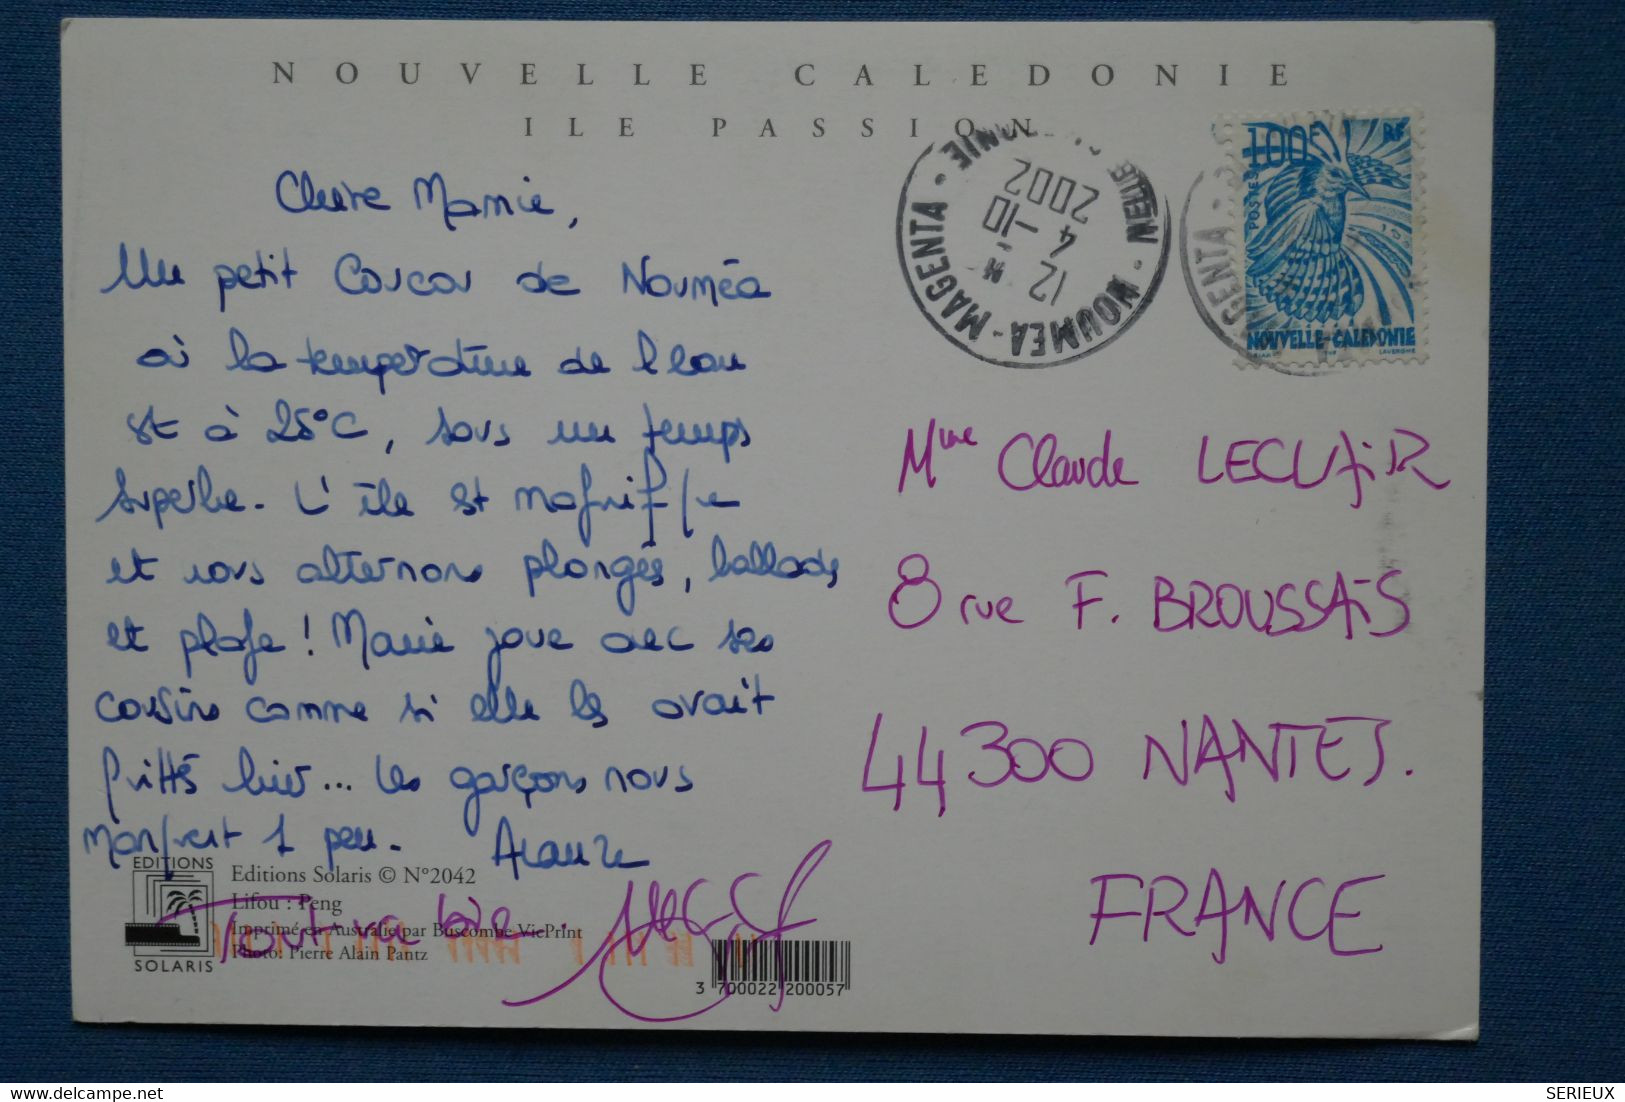 NOUVELLE CALEDONIE
ILE PASSION
Chère Mamie,
Un petit Coucou de Nouméa
où la température de l'eau
est à 25°C, sous un temps
superbe. L'île est magnifique
et nous alternons plongés, ballades
et plage! Marie joue avec ses
cousins comme si elle les avait
quittés hier... Les garçons nous
manquent 1 peu.
Tout va bien.
Mme Claude LECLAIR
8 rue F. BROUSSAIS
44300 NANTES.
FRANCE
NOUMEA-MAGENTA
12
4 -10
2002
100F
RF
POSTES
NOUVELLE-CALEDONIE
LAVERGNE
EDITIONS
SOLARIS
Editions Solaris © N°2042
Lifou : Peng
Imprimé en Australie par Buscombe VicPrint
Photo: Pierre Alain Pantz
3 700022 200057
delcampe.net
SERIEUX